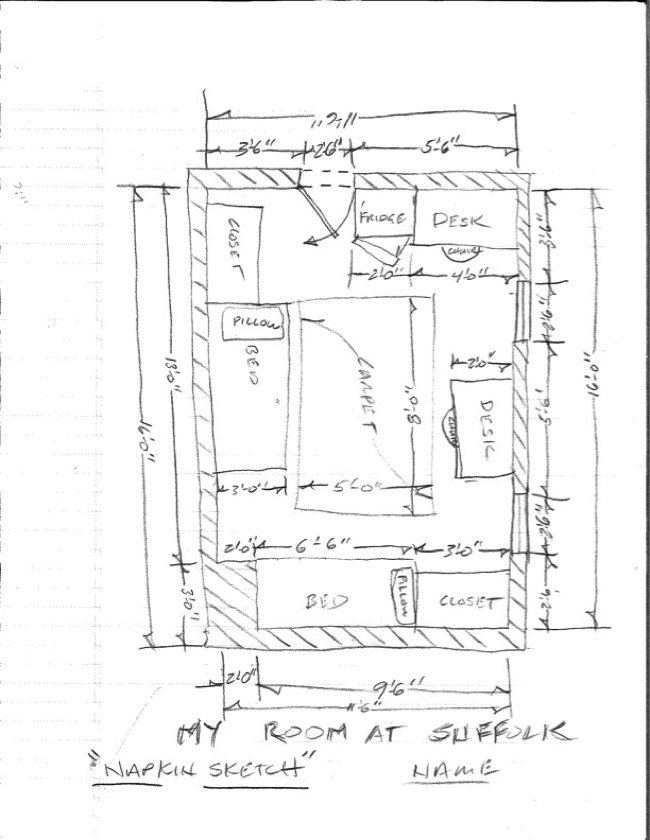 11'6"
3'6" 2'6" 5'6"
FRIDGE DESK
CLOSET
CHAIR
2'0" 4'0"
3'6"
2'6"
PILLOW
BED
CARPET
8'0"
2'0"
DESK
CHAIR
5'6"
16'0"
13'0"
16'0"
3'0" 5'0"
2'6"
2'0" 6'-6" 3'0"
3'0"
BED PILLOW CLOSET
2'6"
2'0"
9'6"
11'6"
MY ROOM AT SUFFOLK
"NAPKIN SKETCH" NAME